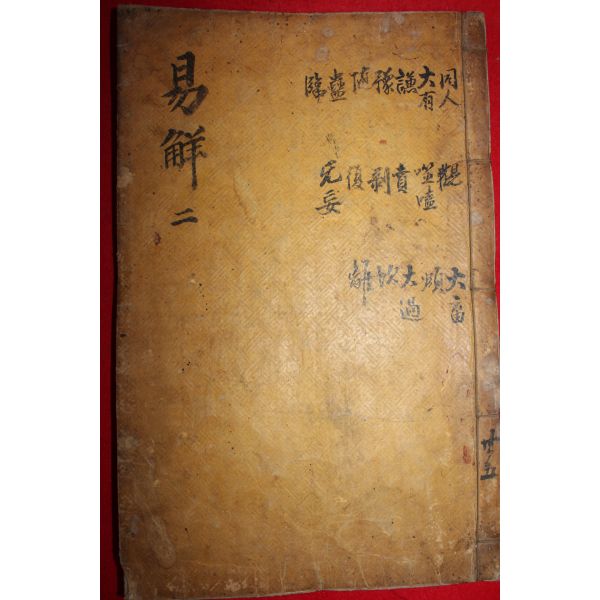 同人 大有 謙 豫 隨 蠱 臨
觀 噬嗑 賁 剝 復 无妄
大畜 頤 大過 坎 離
易觧 二
共五